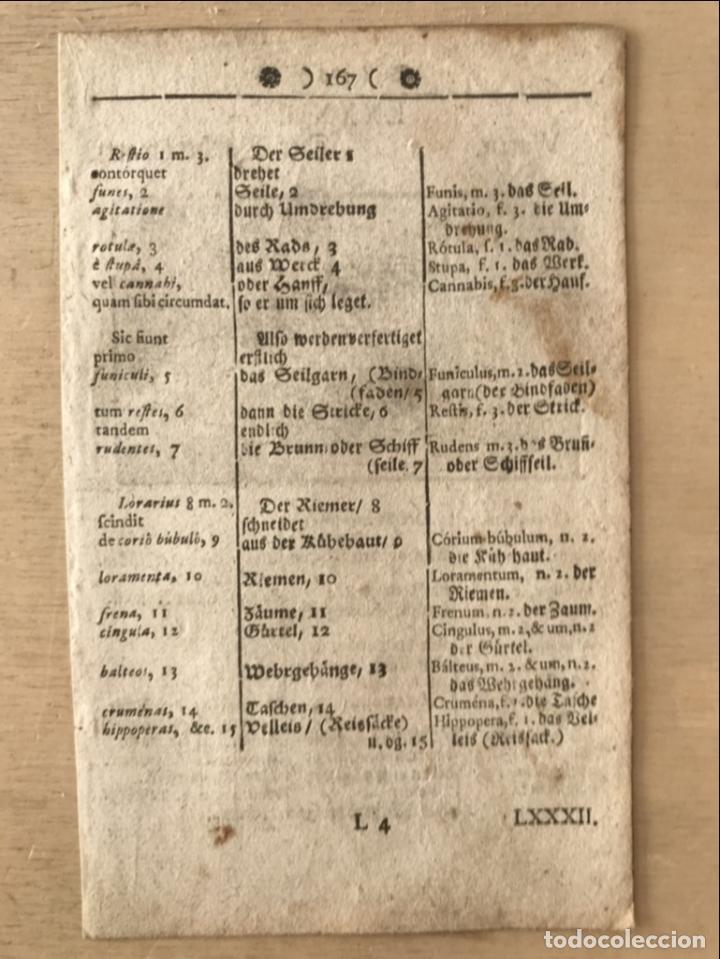 ) 167 (
Restio 1 m. 3.
contorquet
funes, 2
agitatione
rotulæ, 3
è stupâ, 4
vel cannabi,
quam sibi circumdat.
Sic fiunt
primo
funiculi, 5
tum restes, 6
tandem
rudentes, 7
Lorarius 8 m. 2.
scindit
de coriô búbulô, 9
loramenta, 10
frena, 11
cingula, 12
balteos, 13
cruménas, 14
hippoperas, &c. 15
Der Seiler 1
drehet
Seile, 2
durch Umdrehung
des Rads, 3
aus Werck 4
oder Hanff,
so er um sich leget.
Also werden verfertiget
erstlich
das Seilgarn, (Bind-
(faden/ 5
dann die Stricke, 6
endlich
die Brunn- oder Schiff
(seile, 7
Der Riemer/ 8
schneidet
aus der Kühehaut/ 9
Riemen, 10
Zäume, 11
Gürtel, 12
Wehrgehänge, 13
Taschen, 14
Velleis/ (Reissäcke)
u. dg. 15
Funis, m. 3. das Seil.
Agitatio, f. 3. die Um-
drehung.
Rótula, f. 1. das Rad.
Stupa, f. 1. das Werk.
Cannabis, f. 3. der Hanf.
Funiculus, m. 2. das Seil-
garn (der Bindfaden)
Restis, f. 3. der Strick.
Rudens m. 3. das Brun̄-
oder Schiffseil.
Córium búbulum, n. 2.
die Küh-haut.
Loramentum, n. 2. der
Riemen.
Frenum, n. 2. der Zaum.
Cingulus, m. 2, & um, n. 2
der Gürtel.
Bálteus, m. 2. & um, n. 2.
das Wehrgehäng.
Cruména, f. 1. die Tasche
Hippopera, f. 1. das Vel-
leis (Reissack.)
L 4
LXXXII.
todocoleccion
todocoleccion.net